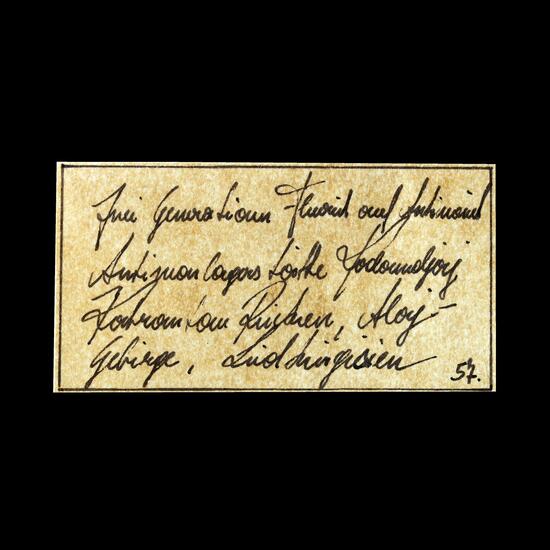 Zwei Generationen Fluorit auf Antimonit
Antimonlagerstätte Kadamdjoj
Katran tau Rücken, Alaj-
Gebirge, Südkirgisien 57.